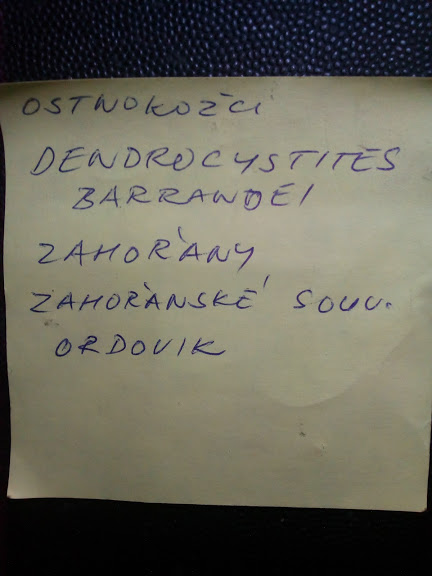 OSTNOKOŽCI
DENDROCYSTITES
BARRANDEI
ZAHOŘANY
ZAHOŘANSKÉ SOUV.
ORDOVIK